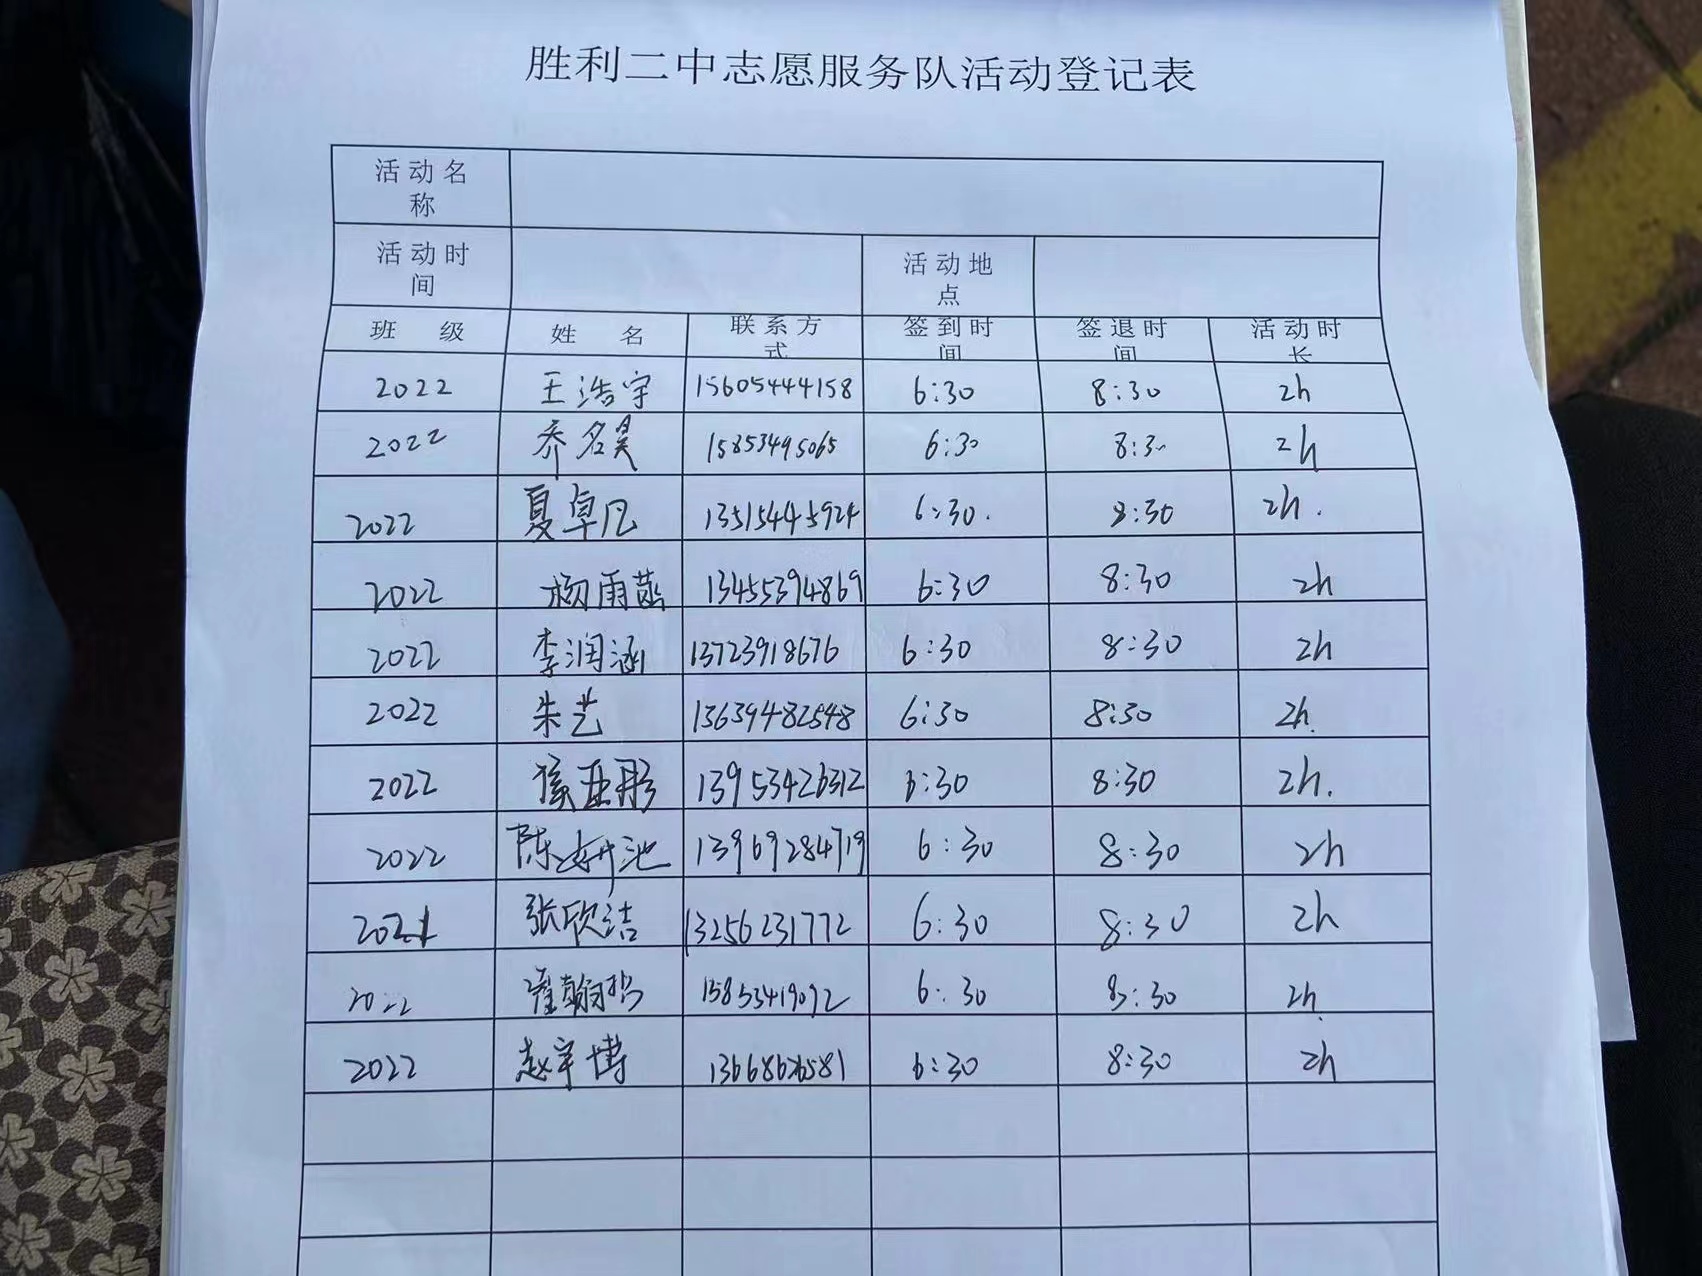 胜利二中志愿服务队活动登记表
活动名
称
活动时
间
活动地
点
班 级 姓 名 联系方式 签到时间 签退时间 活动时长
2022 王浩宇 15605444158 6:30 8:30 2h
2022 乔名昊 15853495065 6:30 8:30 2h
2022 夏卓凡 13515445924 6:30. 8:30 2h.
2022 杨雨菡 13455394869 6:30 8:30 2h
2022 李润涵 13723918676 6:30 8:30 2h
2022 朱艺 13639482548 6:30 8:30 2h.
2022 侯亚彤 13953426312 6:30 8:30 2h.
2022 陈妍池 13969284719 6:30 8:30 2h
2021 张欣洁 13256231772 6:30 8:30 2h
2022 15853419092 6:30 8:30 2h.
2022 赵宇博 6:30 8:30 2h